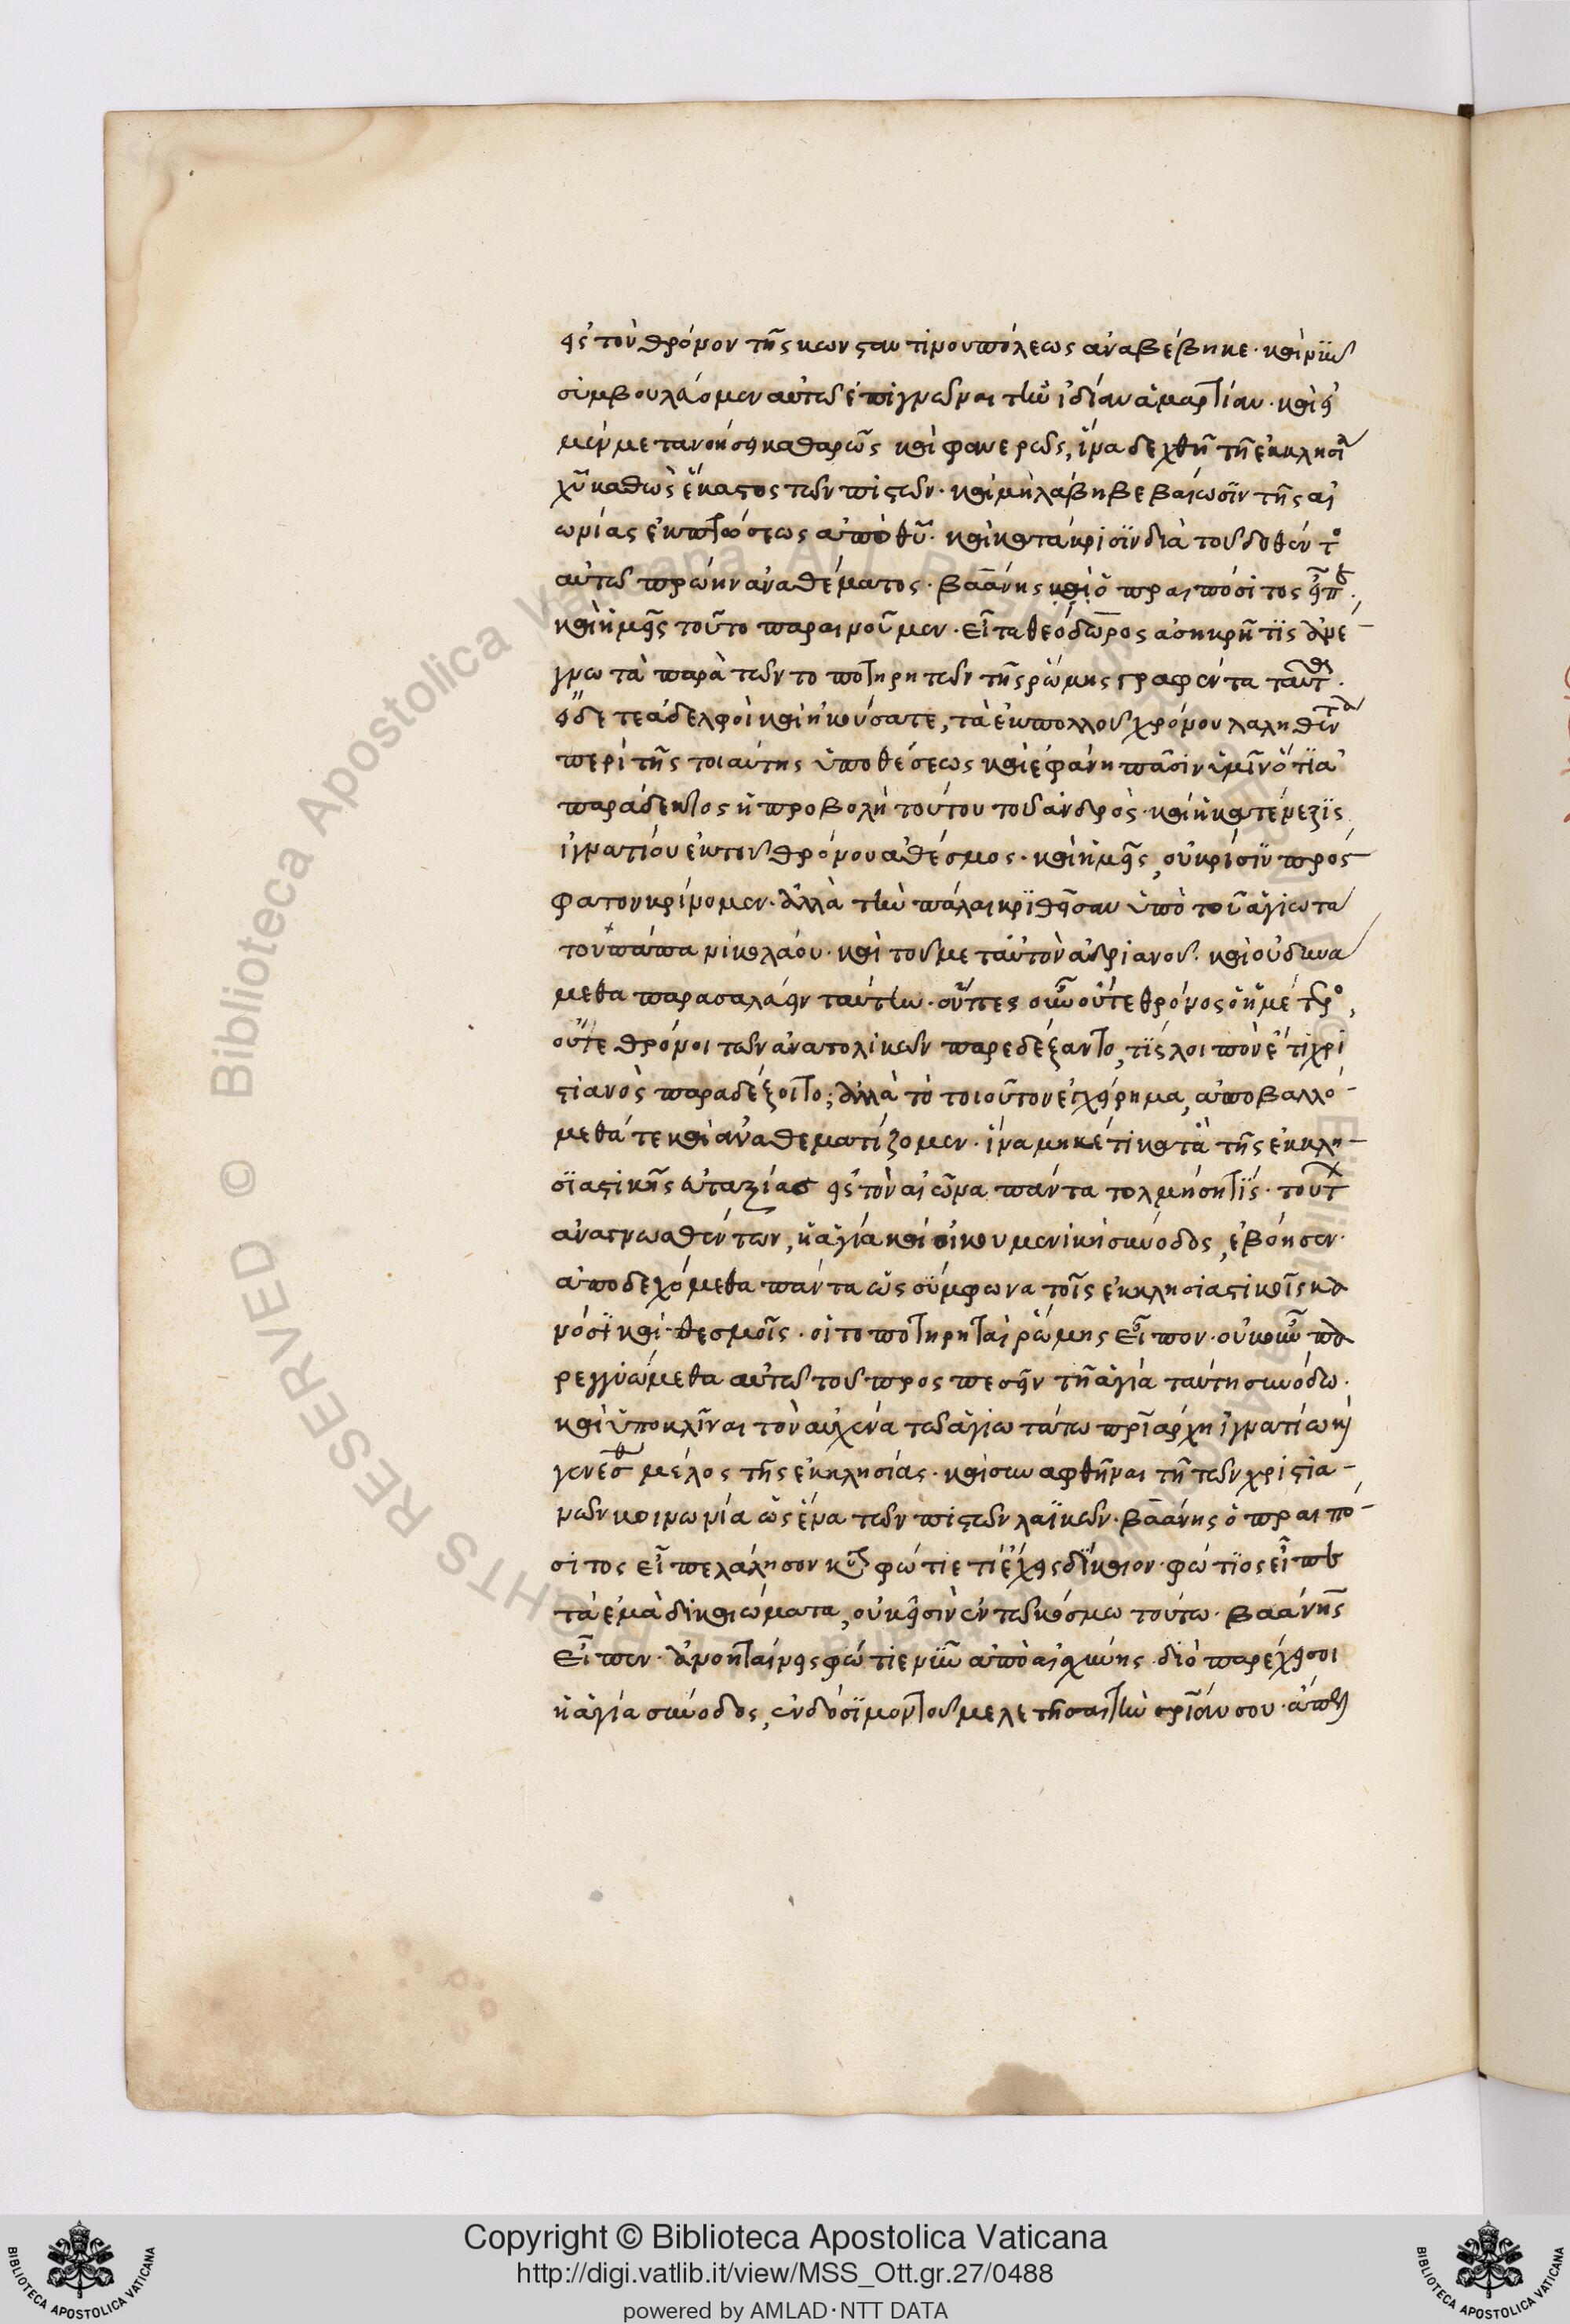 εἰς τὸν θρόνον τῆς κωνσταντινουπόλεως ἀναβέβηκε· καὶ νῦν
συμβουλεύομεν αὐτῶ ἐπιγνῶναι τὴν ἰδίαν ἁμαρτίαν· καὶ εἰ
μὲν μετανοήσει καθαρῶς καὶ φανερῶς, ἵνα δεχθῆ τῆ ἐκκλησία
χῦ καθὼς ἕκαστος τῶν πιστῶν· καὶ μὴ λάβη βεβαίωσϊν τῆς αἰ
ωνίας ἐκπτώσεως ἀπὸ θῦ· καὶ κατάκρισϊν διὰ τοῦ δοθέντος
αὐτῶ πρώην ἀναθέματος· βαάνης καὶ ὁ πραιπόσιτος εἶπε·
καὶ ἡμεῖς τοῦτο παραινοῦμεν· εἶτα θεόδωρος ἀσηκρῆτϊς ἀνέ-
γνω τὰ παρὰ τῶν τοποτηρητῶν τῆς ῥώμης γραφέντα ταῦτα·
εἴδετε ἀδελφοὶ καὶ ἠκούσατε, τὰ ἐκ πολλοῦ χρόνου λαληθέντα
περὶ τῆς τοιαύτης ὑποθέσεως καὶ ἐφάνη πᾶσιν ὑμῖν ὅτϊ ἀ
παράδεκτος ἡ προβολὴ τούτου τοῦ ἀνδρὸς· καὶ ἡ κατένεξϊς
ἰγνατίου ἐκ τοῦ θρόνου ἀθέσμος· καὶ ἡμεῖς, οὐ κρίσϊν πρόσ-
φατον κρίνομεν· ἀλλὰ τὴν πάλαι κρϊθεῖσαν ὑπὸ τοῦ ἁγιωτά
του πάπα νικολάου· καὶ τοῦ μετ' αὐτὸν ἀδριανοῦ· καὶ οὐ δυνά
μεθα παρασαλεύειν ταύτην· οὔτε θρόνος ὁ ἡμέτερος,
οὔτε θρόνοι τῶν ἀνατολικῶν παρεδέξαντο, τϊς λοιπὸν ἔτι χρι
στιανὸς παραδέξοιτο; ἀλλὰ τὸ τοιοῦτον ἐγχείρημα, ἀποβαλλό-
μεθά τε καὶ ἀναθεματίζομεν· ἵνα μηκέτι κατὰ τῆς ἐκκλη-
σϊαστικῆς εὐταξίας εἰς τὸν αἰῶνα πάντα τολμήση τϊς· τούτων
ἀναγνωσθέντων, ἡ ἁγία καὶ οἰκουμενικὴ σύνοδος, ἐβόησεν·
ἀποδεχόμεθα πάντα ὡς σύμφωνα τοῖς ἐκκλησιαστικοῖς κα
νόσϊ καὶ θεσμοῖς· οἱ τοποτηρηταὶ ῥώμης εἶπον· οὐκοῦν πα
ρεγγυώμεθα αὐτῶ τοῦ προσπεσεῖν τῆ ἁγία ταύτη συνόδω·
καὶ ὑποκλῖναι τὸν αὐχένα τῶ ἁγιωτάτω πρϊάρχη ἰγνατίω καὶ
γενέσθαι μέλος τῆς ἐκκλησίας· καὶ συναφθῆναι τῆ τῶν χριστια-
νῶν κοινωνία ὡς ἕνα τῶν πιστῶν λαϊκῶν· βαάνης ὁ πραιπό-
σιτος εἶπε λάλησον κῦρ φώτιε τί ἔχεις δίκαιον· φώτϊος εἶπε
τὰ ἐμὰ δικαιώματα, οὐκ εἰσὶν ἐν τῶ κόσμω τούτω· βαάνης
εἶπεν· ἀνοηταίνεις φώτιε νῦν ἀπὸ αἰσχύνης διὸ παρέχει σοι
ἡ ἁγία σύνοδος, ἐνδόσϊμον τοῦ μελετῆσαι τὴν σρῖαν σου· ἄπελθε